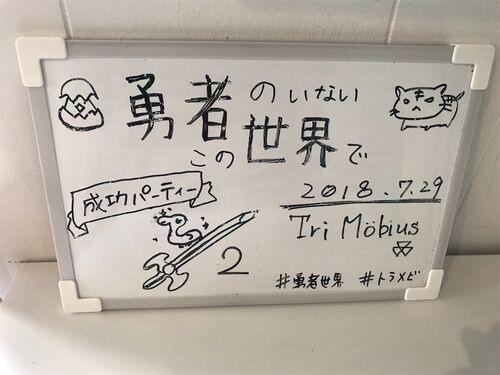 勇者のいない
この世界で
成功パーティー
2
2018.7.29
Tri Möbius
#勇者世界 #トラメビ